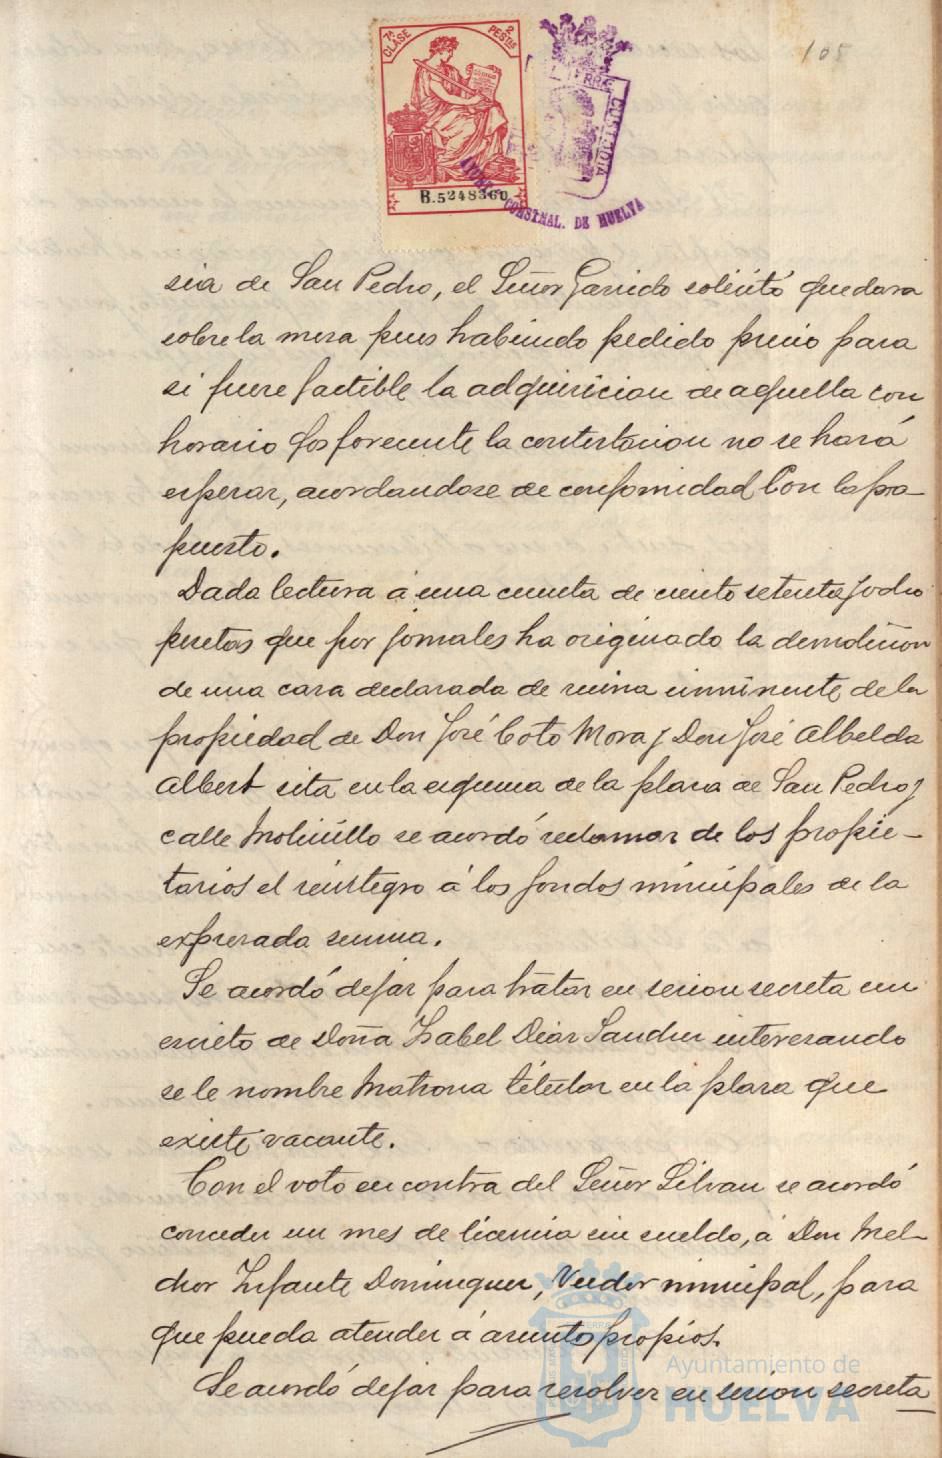 105
7ª CLASE
2 PESETAS
B.5248360
CUSTODIA
AYUNT. CONSTNAL. DE HUELVA
sia de San Pedro, el Señor Garrido solicitó quedara
sobre la mesa pues habiendo pedido precio para
si fuere factible la adquisicion de aquella con
horario fosforecente la contestacion no se hará
esperar, acordandose de conformidad con lo pro-
puesto.
Dada lectura á una cuenta de ciento setenta y ocho
pesetas que por jornales ha originado la demolicion
de una casa declarada de ruina inminente de la
propiedad de Don José Coto Mora y Don José Albelda
Albert sita en la esquina de la plaza de San Pedro y
calle Molinillo se acordó reclamar de los propie-
tarios el reintegro á los fondos municipales de la
expresada suma.
Se acordó dejar para tratar en sesion secreta un
escrito de Doña Isabel Diaz Sanchez interesando
se le nombre Matrona titular en la plaza que
existe vacante.
Con el voto en contra del Señor Silvan se acordó
conceder un mes de licencia sin sueldo, á Don Mel-
chor Infante Dominguez, Veedor municipal, para
que pueda atender á asuntos propios.
Se acordó dejar para resolver en sesion secreta
Ayuntamiento de
HUELVA